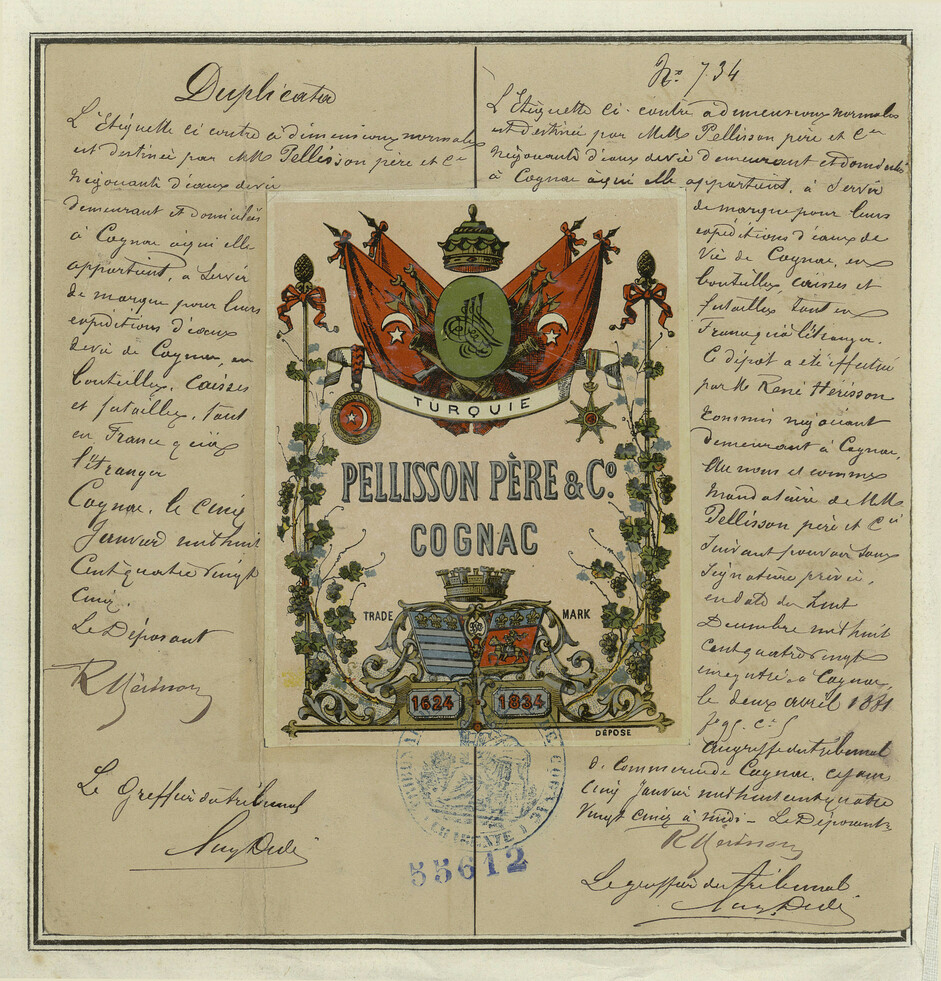 Duplicata
L'Etiquette ci contre à dimensions normales
est destinée par MM. Pellisson père et Cie
Négociants d'eaux de vie
demeurant et domiciliés
à Cognac à qui elle
appartient, à servir
de marque pour leurs
expéditions d'eaux
de vie de Cognac, en
bouteilles, caisses
et futailles, tant
en France qu'à
l'étranger
Cognac, le cinq
Janvier mil huit
cent quatre vingt
cinq.
Le Déposant
R Hérisson
Le Greffier du tribunal
No 734
L'Etiquette ci-contre à dimensions normales
est destinée par MM. Pellisson père et Cie
Négociants d'eaux de vie demeurant et domiciliés
à Cognac à qui elle appartient, à servir
de marque pour leurs
expéditions d'eaux de
vie de Cognac, en
bouteilles, caisses et
futailles tant en
France qu'à l'étranger.
Ce dépot a été effectué
par M. René Hérisson
commis négociant
demeurant à Cognac,
au nom et comme
mandataire de MM.
Pellisson père et Cie
suivant pouvoir sous
signature privée,
en date du huit
Décembre mil huit
cent quatre vingt
enregistré à Cognac,
le deux avril 1881
au greffe du tribunal
de Commerce de Cognac, ce jour
cinq Janvier mil huit cent quatre
vingt cinq à midi - Le Déposant
R Hérisson
Le greffier du tribunal
TURQUIE
PELLISSON PÈRE & Co.
COGNAC
TRADE MARK
1624 1834
DÉPOSE
55612